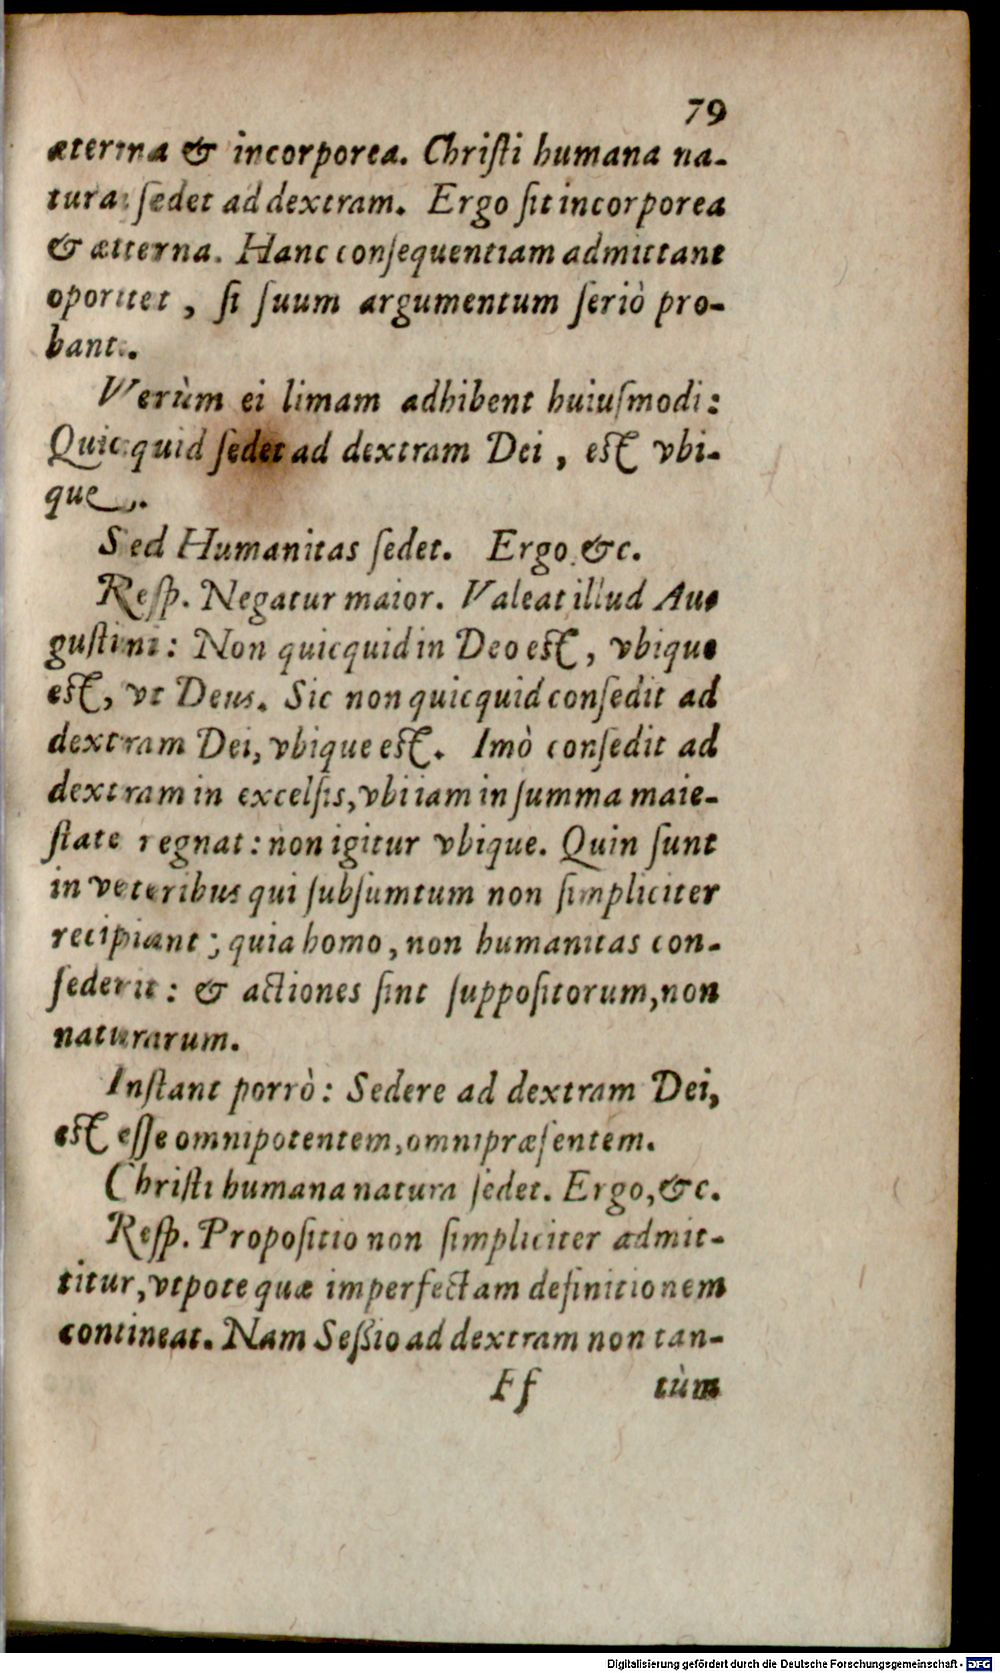 79
æterna & incorporea. Christi humana na-
tura sedet ad dextram. Ergo sit incorporea
& æterna. Hanc consequentiam admittant
oportet, si suum argumentum seriò pro-
bant.
Verùm ei limam adhibent huiusmodi:
Quicquid sedet ad dextram Dei, est vbi-
que.
Sed Humanitas sedet. Ergo &c.
Resp. Negatur maior. Valeat illud Au-
gustini: Non quicquid in Deo est, vbique
est, vt Deus. Sic non quicquid consedit ad
dextram Dei, vbique est. Imò consedit ad
dextram in excelsis, vbi iam in summa maie-
state regnat: non igitur vbique. Quin sunt
in veteribus qui subsumtum non simpliciter
recipiant; quia homo, non humanitas con-
sederit: & actiones sint suppositorum, non
naturarum.
Instant porrò: Sedere ad dextram Dei,
est esse omnipotentem, omnipræsentem.
Christi humana natura sedet. Ergo, &c.
Resp. Propositio non simpliciter admit-
titur, vtpote quæ imperfectam definitionem
contineat. Nam Sessio ad dextram non tan-
Ff tùm
Digitalisierung gefördert durch die Deutsche Forschungsgemeinschaft - DFG